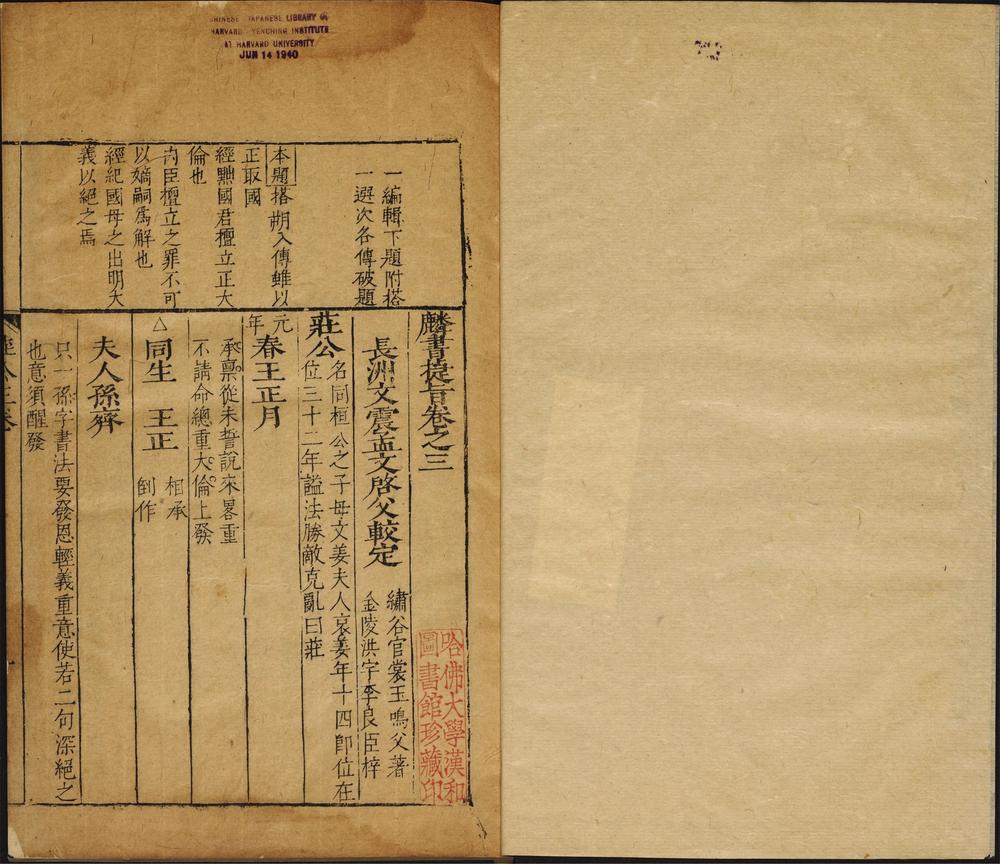 CHINESE JAPANESE LIBRARY OF
HARVARD YENCHING INSTITUTE
AT HARVARD UNIVERSITY
JUN 14 1940
一編輯下題附搭
一選次各傳破題
本題搭朔入傳雖以
正取國
經黜國君擅立正大
倫也
內臣擅立之罪不可
以嫡嗣爲解也
經紀國母之出明大
義以絕之焉
麟書捷旨卷之三
長洲文震孟文啓父較定
繡谷官裳玉鳴父著
金陵洪宇李良臣梓
莊公
名同桓公之子母文姜夫人哀姜年十四卽位在
位三十二年謚法勝敵克亂曰莊
元年
春王正月
承稟從未誓說來畧重
不請命總重大倫上發
△同生 王正
相承
倒作
夫人孫齊
只一孫字書法要發恩輕義重意使若二句深絕之
也意須醒發
哈佛大學漢和
圖書館珍藏印